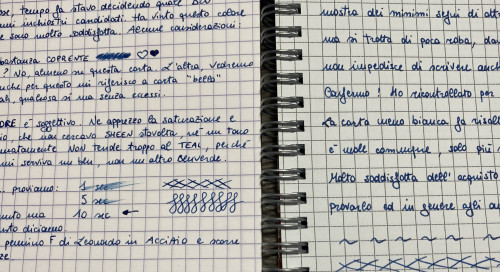 tempo fa stavo decidendo quale BLU
inchiostri candidati. Ha vinto questo colore
sono molto soddisfatta. Alcune considerazioni:
abbastanza COPRENTE
? No, almeno su questa carta. L'altra, vedremo
anche per questo mi riferisco a carta "bella"
qualcosa si ma senza eccessi.
è soggettivo. Ne apprezzo la saturazione e
che non cercavo SHEEN stavolta, nè un tono
NON tende troppo al TEAL, perchè
mi serviva un blu, non un altro
... proviamo: 1 sec
5 sec
10 sec
diciamo.
pennino F di Leonardo in Acciaio e scorre
mostra dei minimi segni di
ma si tratta di poca roba,
non impedisce di scrivere anche
Confermo! Ho ricontrollato per
La carta meno bianca fa
e vale comunque, solo più
Molto soddisfatta dell'acquisto,
provarlo ed in genere agli